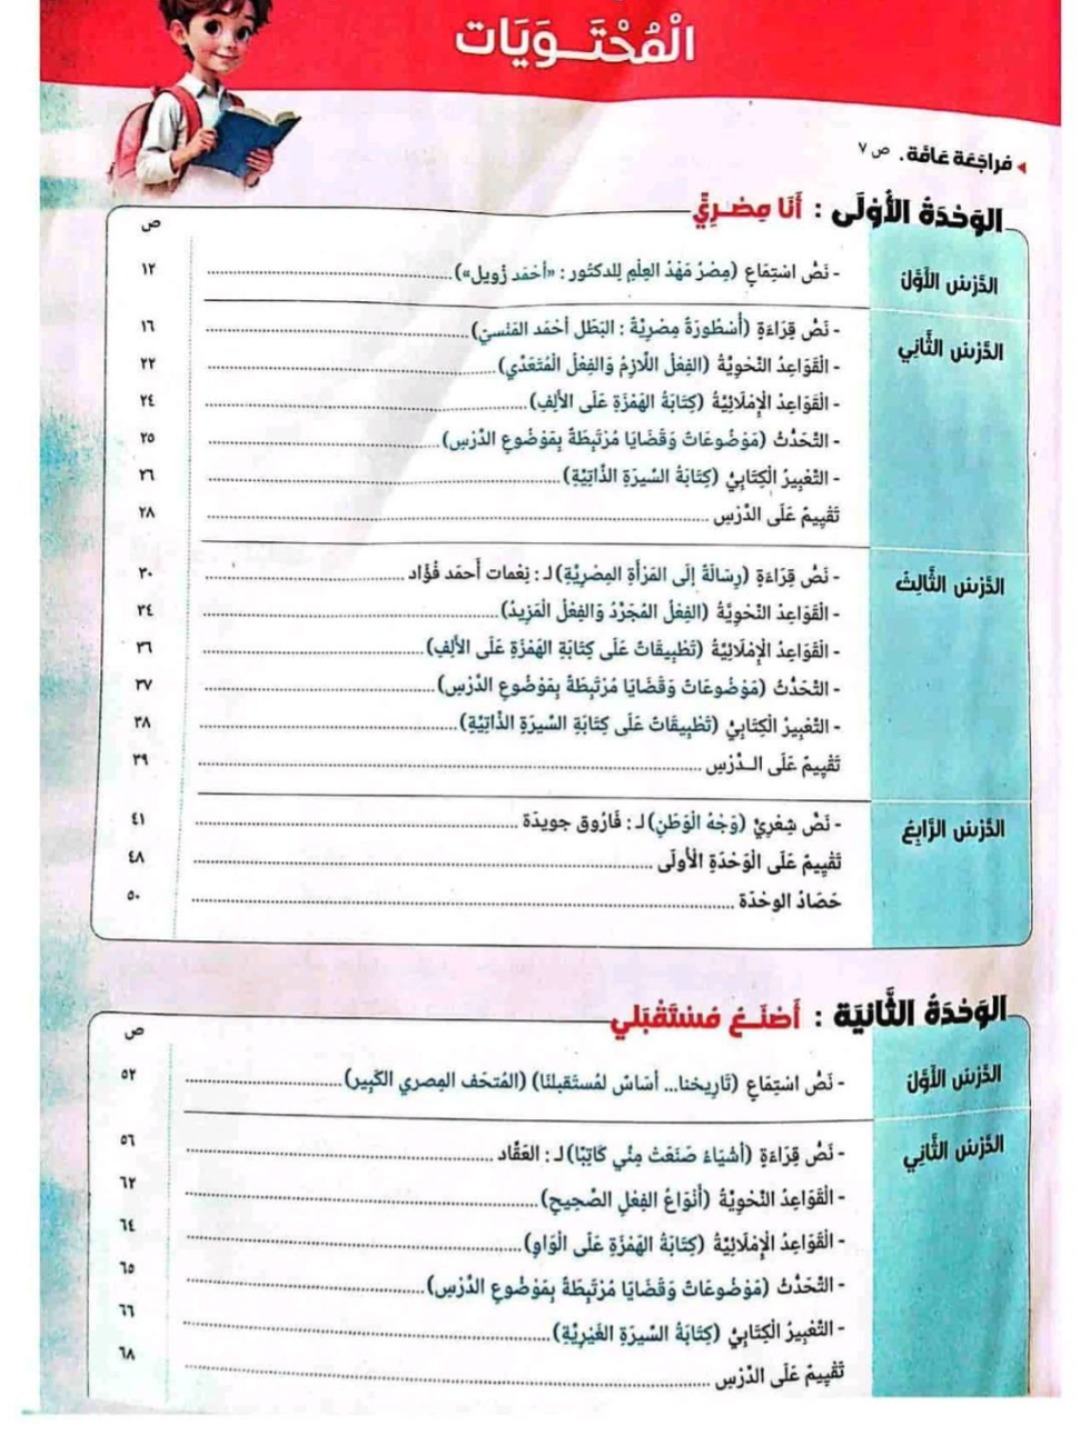 الْمُحْتَوَيَات
مُرَاجَعَة عَامَّة. ص ٧
الوَحْدَةُ الأُولَى : أَنَا مِصْرِيٌّ
ص
الدَّرْسُ الأَوَّلُ
- نَصُّ اسْتِمَاعٍ (مِصْرُ مَهْدُ العِلْمِ لِلدكتُور : «أَحْمَد زُويل») ١٢
الدَّرْسُ الثَّانِي
- نَصُّ قِرَاءَةٍ (أُسْطُورَةٌ مِصْرِيَّةٌ : البَطَل أَحْمَد المَنْسيّ) ١٦
- الْقَوَاعِدُ النَّحْوِيَّةُ (الفِعْلُ اللَّازِمُ وَالفِعْلُ الْمُتَعَدِّي) ٢٢
- الْقَوَاعِدُ الْإِمْلَائِيَّةُ (كِتَابَةُ الهَمْزَةِ عَلَى الأَلِفِ) ٢٤
- التَّحَدُّثُ (مَوْضُوعَاتٌ وَقَضَايَا مُرْتَبِطَةٌ بِمَوْضُوعِ الدَّرْسِ) ٢٥
- التَّعْبِيرُ الْكِتَابِيُّ (كِتَابَةُ السِّيرَةِ الذَّاتِيَّةِ) ٢٦
تَقْيِيمٌ عَلَى الدَّرْسِ ٢٨
الدَّرْسُ الثَّالِثُ
- نَصُّ قِرَاءَةٍ (رِسَالَةٌ إِلَى المَرْأَةِ المِصْرِيَّةِ) لـ : نِعْمَات أَحمَد فُؤَاد ٣٠
- الْقَوَاعِدُ النَّحْوِيَّةُ (الفِعْلُ المُجَرَّدُ وَالفِعْلُ الْمَزِيدُ) ٣٤
- الْقَوَاعِدُ الْإِمْلَائِيَّةُ (تَطْبِيقَاتٌ عَلَى كِتَابَةِ الهَمْزَةِ عَلَى الأَلِفِ) ٣٦
- التَّحَدُّثُ (مَوْضُوعَاتٌ وَقَضَايَا مُرْتَبِطَةٌ بِمَوْضُوعِ الدَّرْسِ) ٣٧
- التَّعْبِيرُ الْكِتَابِيُّ (تَطْبِيقَاتٌ عَلَى كِتَابَةِ السِّيرَةِ الذَّاتِيَّةِ) ٣٨
تَقْيِيمٌ عَلَى الـدَّرْسِ ٣٩
الدَّرْسُ الرَّابِعُ
- نَصٌّ شِعْرِيٌّ (وَجْهُ الْوَطَنِ) لـ : فَارُوق جويدَة ٤١
تَقْيِيمٌ عَلَى الْوَحْدَةِ الْأُولَى ٤٨
حَصَادُ الوحْدَة ٥٠
الوَحْدَةُ الثَّانيَة : أَصْنَـعُ مُسْتَقْبَلي
ص
الدَّرْسُ الأَوَّلُ
- نَصُّ اسْتِمَاعٍ (تَارِيخنا... أسَاسٌ لمُستَقبلنَا) (المُتحَف المِصري الكَبِير) ٥٢
الدَّرْسُ الثَّانِي
- نَصُّ قِرَاءَةٍ (أَشْيَاءُ صَنَعَتْ مِنِّي كَاتِبًا) لـ : العَقَّاد ٥٦
- الْقَوَاعِدُ النَّحْوِيَّةُ (أَنْوَاعُ الفِعْلِ الصَّحِيحِ) ٦٢
- الْقَوَاعِدُ الْإِمْلَائِيَّةُ (كِتَابَةُ الهَمْزَةِ عَلَى الْوَاوِ) ٦٤
- التَّحَدُّثُ (مَوْضُوعَاتٌ وَقَضَايَا مُرْتَبِطَةٌ بِمَوْضُوعِ الدَّرْسِ) ٦٥
- التَّعْبِيرُ الْكِتَابِيُّ (كِتَابَةُ السِّيرَةِ الغَيْرِيَّةِ) ٦٦
تَقْيِيمٌ عَلَى الدَّرْسِ ٦٨